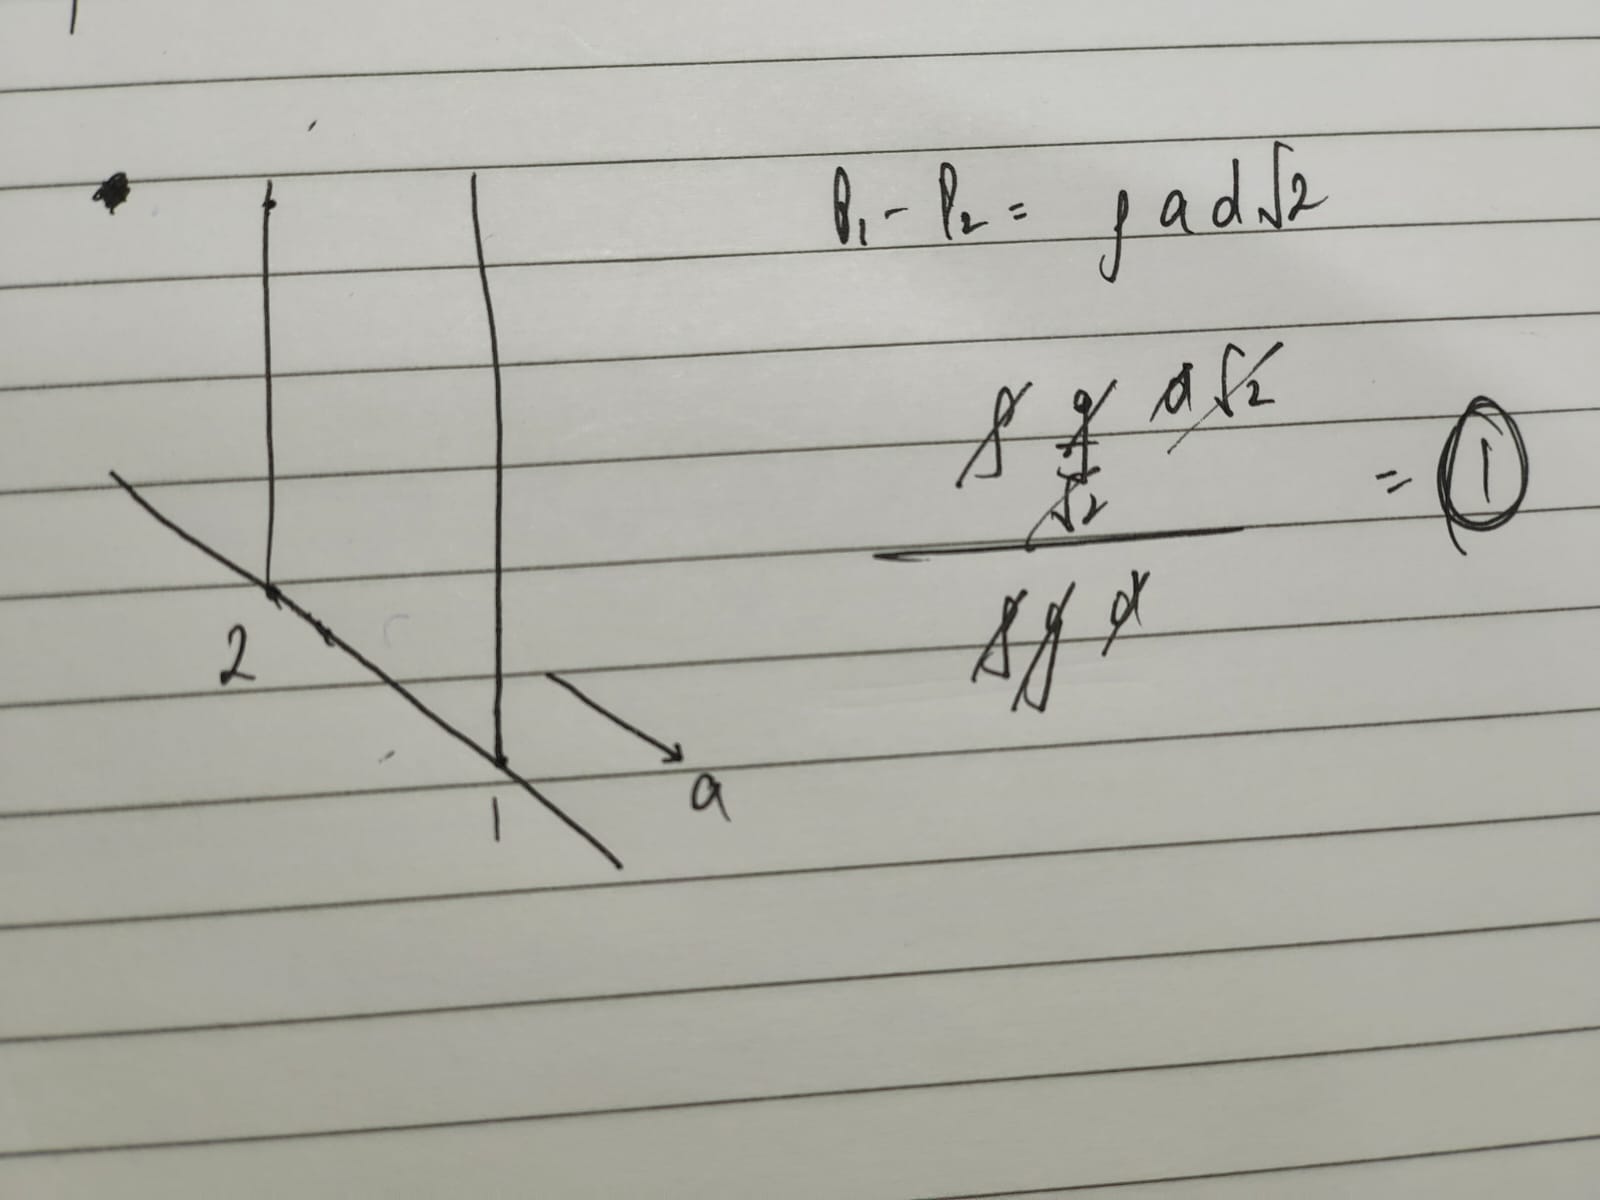 P₁ - P₂ = ρ a d√2
ρ g/√2 d√2
= 1
ρ g d
2
a
1